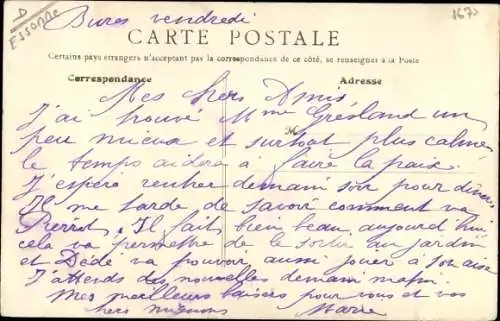 D
Essonne
Bures vendredi
1670
CARTE POSTALE
Certains pays étrangers n'acceptant pas la correspondance de ce côté, se renseigner à la Poste
Correspondance
Adresse
Mes chers Amis
J'ai trouvé Mme Gresland un
M
peu mieux et surtout plus calme
le temps aidera à faire la paix.
J'espère rentrer demain soir pour dîner
Il me tarde de savoir comment va
Pierrot. Il fait bien beau aujourd'hui
cela va permettre de le sortir au jardin
et Dédé va pouvoir aussi jouer à son aise
J'attends des nouvelles demain matin.
Mes meilleurs baisers pour vous et vos
chers mignons Marie